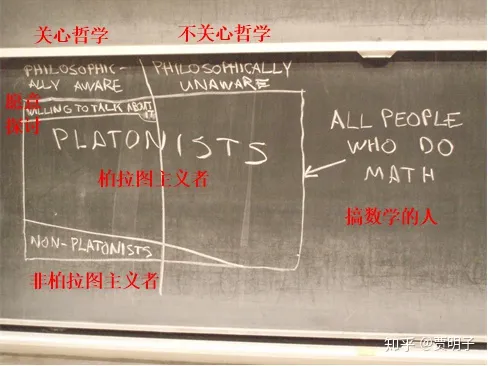 关心哲学
不关心哲学
PHILOSOPHIC-
ALLY AWARE
PHILOSOPHICALLY
UNAWARE
愿意
探讨
WILLING TO TALK ABOUT
IT
PLATONISTS
柏拉图主义者
ALL PEOPLE
WHO DO
MATH
搞数学的人
NON-PLATONISTS
非柏拉图主义者
知乎 @贾明子